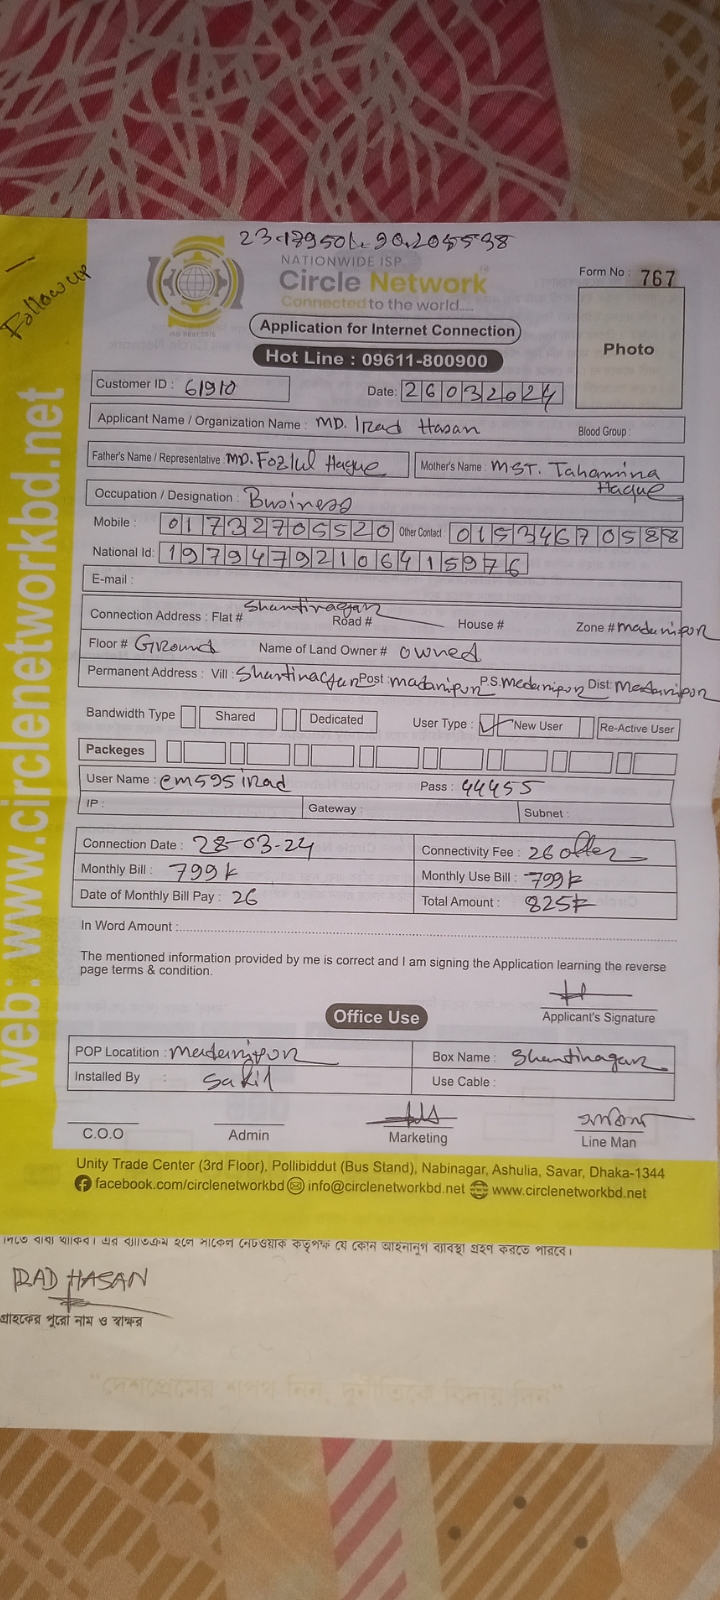 23.189501, 90.205538
Follow up
NATIONWIDE ISP
Circle Network
Connected to the world....
Form No : 767
Photo
Application for Internet Connection
Hot Line : 09611-800900
Customer ID : 61910
Date: 26032024
Applicant Name / Organization Name : MD. Irad Hasan Blood Group :
Father's Name / Representative : MD. Fozlul Haque Mother's Name : MST. Tahamina Haque
Occupation / Designation : Business
Mobile : 01732705520 Other Contact : 01534670588
National Id: 19794792106415976
E-mail :
Connection Address : Flat # Shantinagar Road # House # Zone # madaripur
Floor # Ground Name of Land Owner # owned
Permanent Address : Vill : Shantinagar Post : madaripur P.S. madaripur Dist: Madaripur
Bandwidth Type Shared Dedicated User Type : New User Re-Active User
Packeges
User Name : em595irad Pass : 44455
IP : Gateway : Subnet :
Connection Date : 28-03-24 Connectivity Fee : 26 offer
Monthly Bill : 799 Monthly Use Bill : 799
Date of Monthly Bill Pay : 26 Total Amount : 825
In Word Amount :
The mentioned information provided by me is correct and I am signing the Application learning the reverse
page terms & condition.
Applicant's Signature
Office Use
POP Locatition : madaripur Box Name : Shantinagar
Installed By : Sakil Use Cable :
C.O.O Admin Marketing Line Man
Unity Trade Center (3rd Floor), Pollibiddut (Bus Stand), Nabinagar, Ashulia, Savar, Dhaka-1344
facebook.com/circlenetworkbd info@circlenetworkbd.net www.circlenetworkbd.net
web: www.circlenetworkbd.net
দিতে বাধ্য থাকিব। এর ব্যতিক্রম হলে সার্কেল নেটওয়ার্ক কতৃপক্ষ যে কোন আইনানুগ ব্যাবস্থা গ্রহণ করতে পারবে।
IRAD HASAN
গ্রাহকের পুরো নাম ও স্বাক্ষর
"দেশপ্রেমের শপথ নিন, দুর্নীতিকে বিদায় দিন"